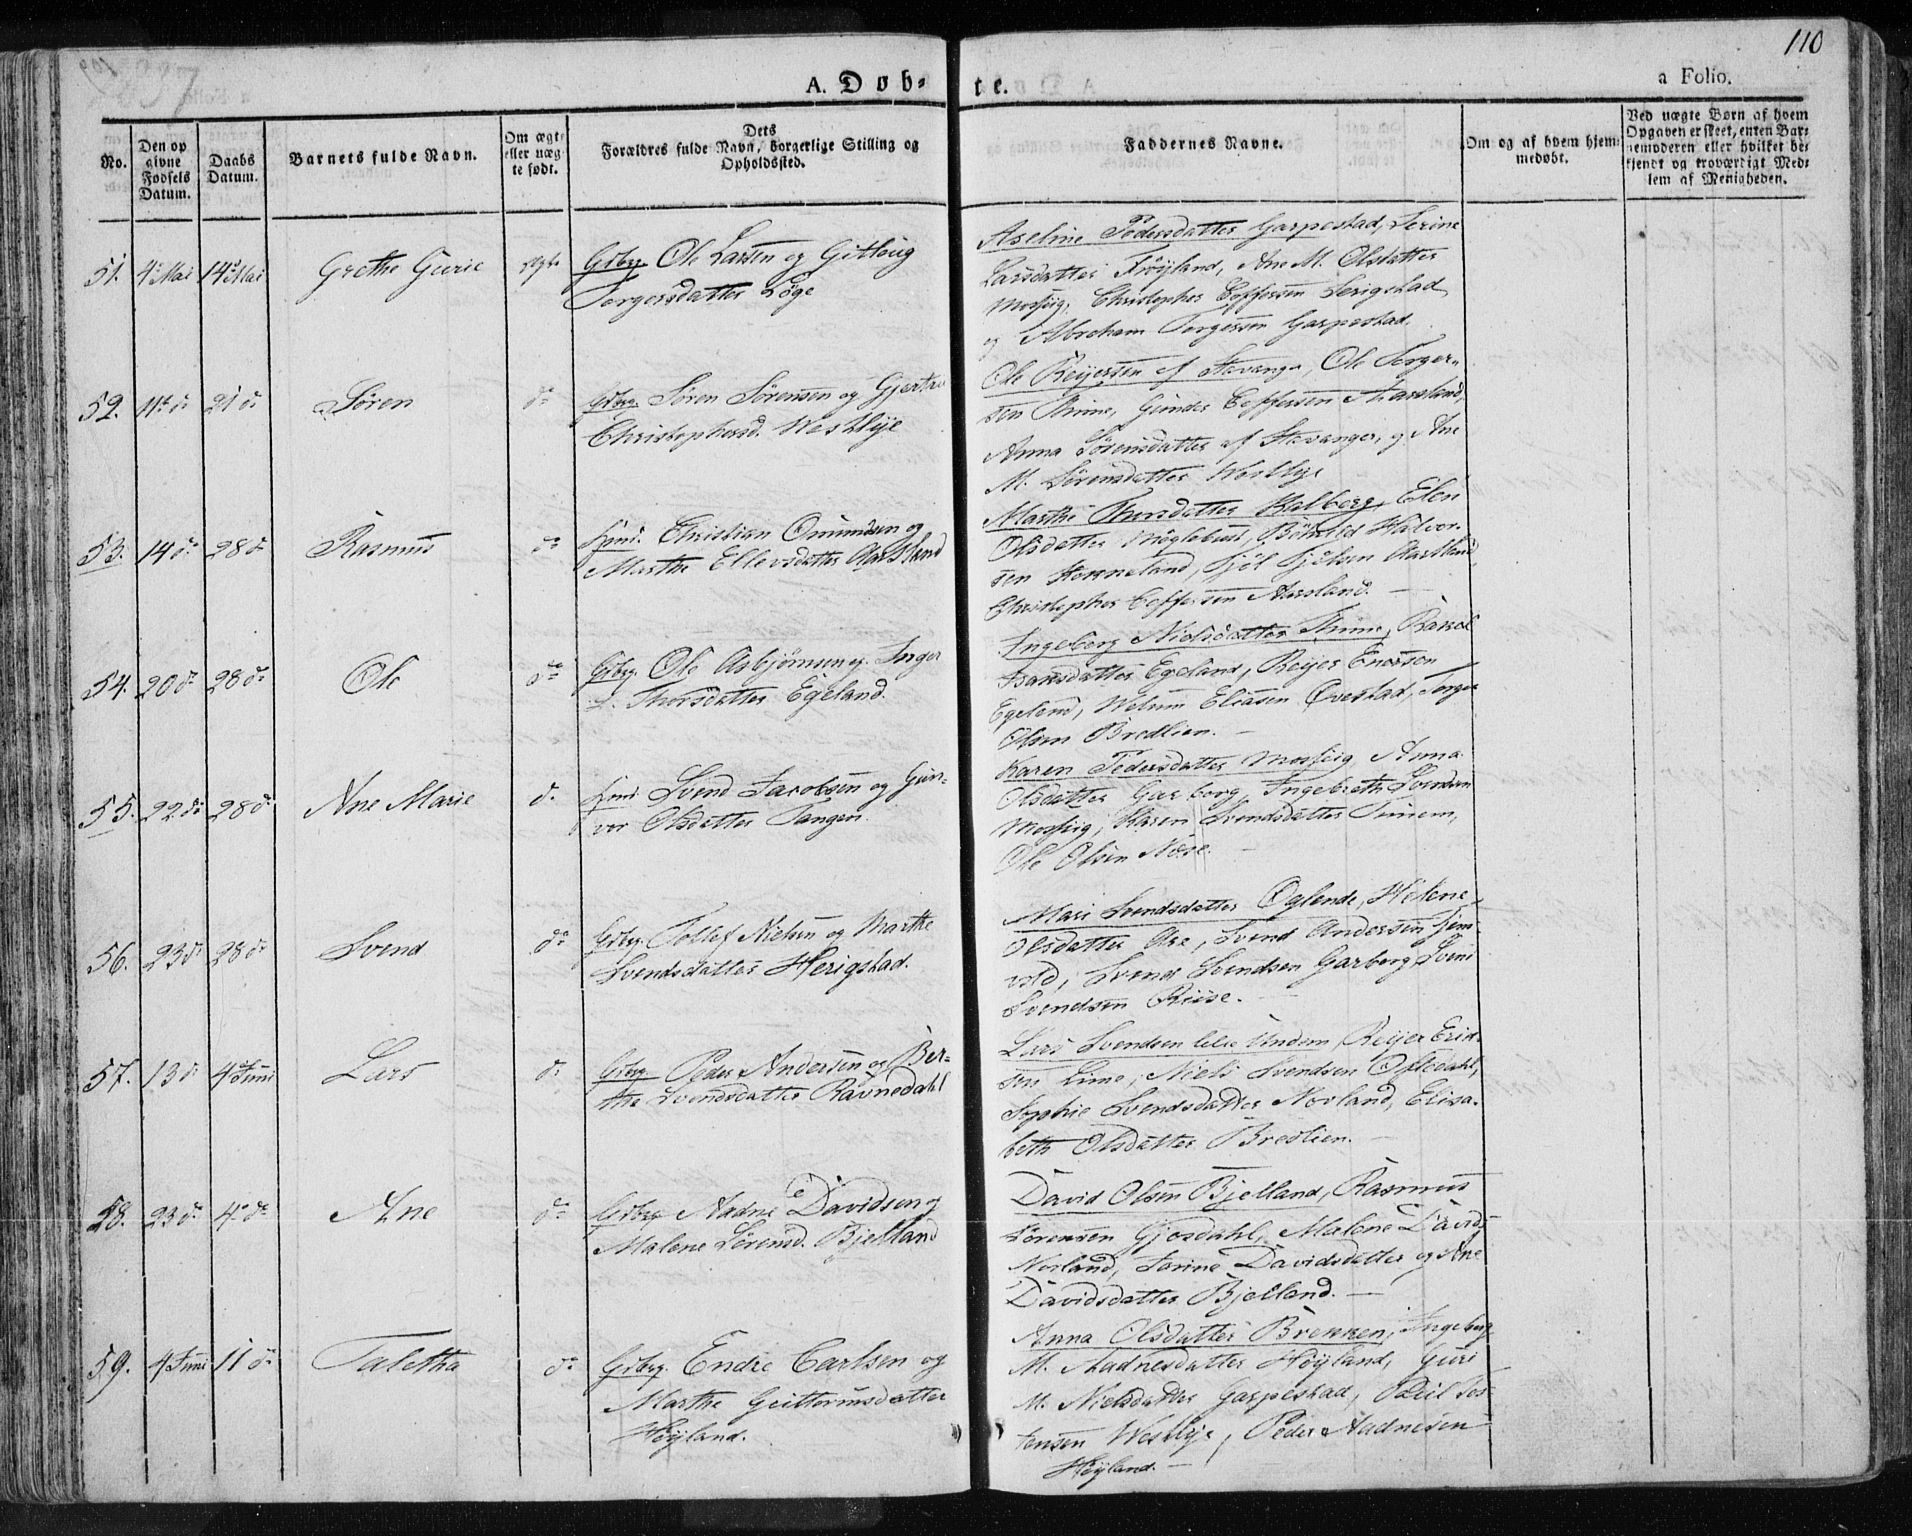 110
A. Døb-
te.
a Folio.
No.
Den op
givne
Fødsels
Datum.
Daabs
Datum.
Barnets fulde Navn.
Om ægte
eller uæg
te født.
Dets
Forældres fulde Navn, borgerlige Stilling og
Opholdssted.
Faddernes Navne.
Om og af hvem hjem-
medøbt.
Ved uægte Børn af hvem
Opgaven er skeet, enten Bar-
nemoderen eller hvilket be-
kjendt og troværdigt Med-
lem af Menigheden.
51. 4de Mai 14de Mai Grethe Gurie ægte Gbrg. Ole Larsen og Gitlaug
Torgersdatter Løge
Aseline Pedersdatter Garpestad, Serine
Larsdatter Frøyland, Ane M. Olsdatter
Mossig, Christopher Toffersen Serigstad
og Abraham Torgersen Garpestad.
52. 11te do 21 do Søren do Gbrg. Søren Sørensen og Gjertru
Christophersd. Westlye
Ole Reijersen af Stavanger, Ole Torger-
sen Thime, Gunder Toffersen Aarsland,
Anna Sørensdatter af Stavanger, og Ane
M. Sørensdatter Westlye
53. 14 do 28 do Rasmus do Hmd. Christian Omundsen og
Marthe Ellevsdatter Aarsland
Marthe Thorsdatter Kalberg, Elen
Olsdatter Møglebust, Halvor-
sen Hommeland, Sjøl Sjølsen Aarsland,
Christopher Toffersen Aarsland.
54. 20 do 28 do Ole do Gbrg. Ole Asbjørnsen og Inger
S. Thorsdatter Egeland.
Ingeborg Nielsdatter Thime, Rasol
Hansdatter Egeland, Reijer Enersen
Egeland, Eliasen Qvestad, Torger
Olsen Bredlien.
55. 22 do 28 do Ane Marie do Hmd. Svend Jacobsen og Gun-
vor Olsdatter Tangen.
Karen Pedersdatter Mossig Anna
Olsdatter Garborg, Ingebreth Svendsen
Mossig, Karen Svendsdatter Tunem,
Ole Olsen Nøse.
56. 23 do 28 do Svend do Gbrg. Tollef Nielsen og Marthe
Svendsdatter Herigstad.
Mari Svendsdatter Oglende, Helene
Olsdatter Are, Svend Andersen Sem-
vold, Svend Svendsen Garborg, Svend
Svendsen Riise.
57. 13 do 4de Juni Lars do Gbrg. Peder Andersen og Ber-
the Svendsdatter Ravnedahl
Lars Svendsen lille Undem, Reijer Erik-
sen Lime, Niels Svendsen Oftedahl,
Sophie Svendsdatter Novland, Elisa-
beth Olsdatter Bredlien.
58. 23 do 4de do Ane do Gbrg. Aadne Davidsen og
Malene Sørensd. Bjelland
David Olsen Bjelland, Rasmus
Sørensen Gjesdahl, Malene Davids-
Norland, Serine Davidsdatter og Ane
Davidsdatter Bjelland.
59. 4 Juni 11 do Taletha do Gbrg. Endre Carlsen og
Marthe Guttormsdatter
Høyland.
Anna Olsdatter Brekken, Ingeborg
M. Aadnesdatter Høyland, Guri
M. Nielsdatter Garpestad, Jos-
tensen Westlye, Peder Aadnesen
Høyland.